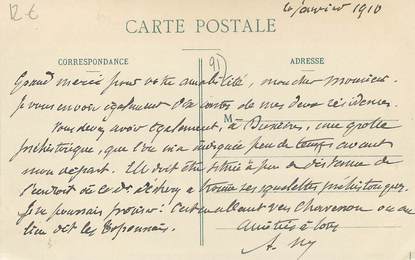 12 €
janvier 1910
CARTE POSTALE
CORRESPONDANCE
91
ADRESSE
Grand merci pour votre amabilité, mon cher monsieur.
Je vous envoie également des vues de mes deux résidences.
M
Vous devez avoir également, à Buxières, une grotte
préhistorique, que l'on m'a indiquée peu de temps avant
mon départ. Il doit être situé à peu de distance de
l'endroit où le dr a trouvé ses squelettes préhistoriques.
Je ne pourrais préciser! C'est en allant vers ou au
lieu dit les
Amitiés à tous
A.